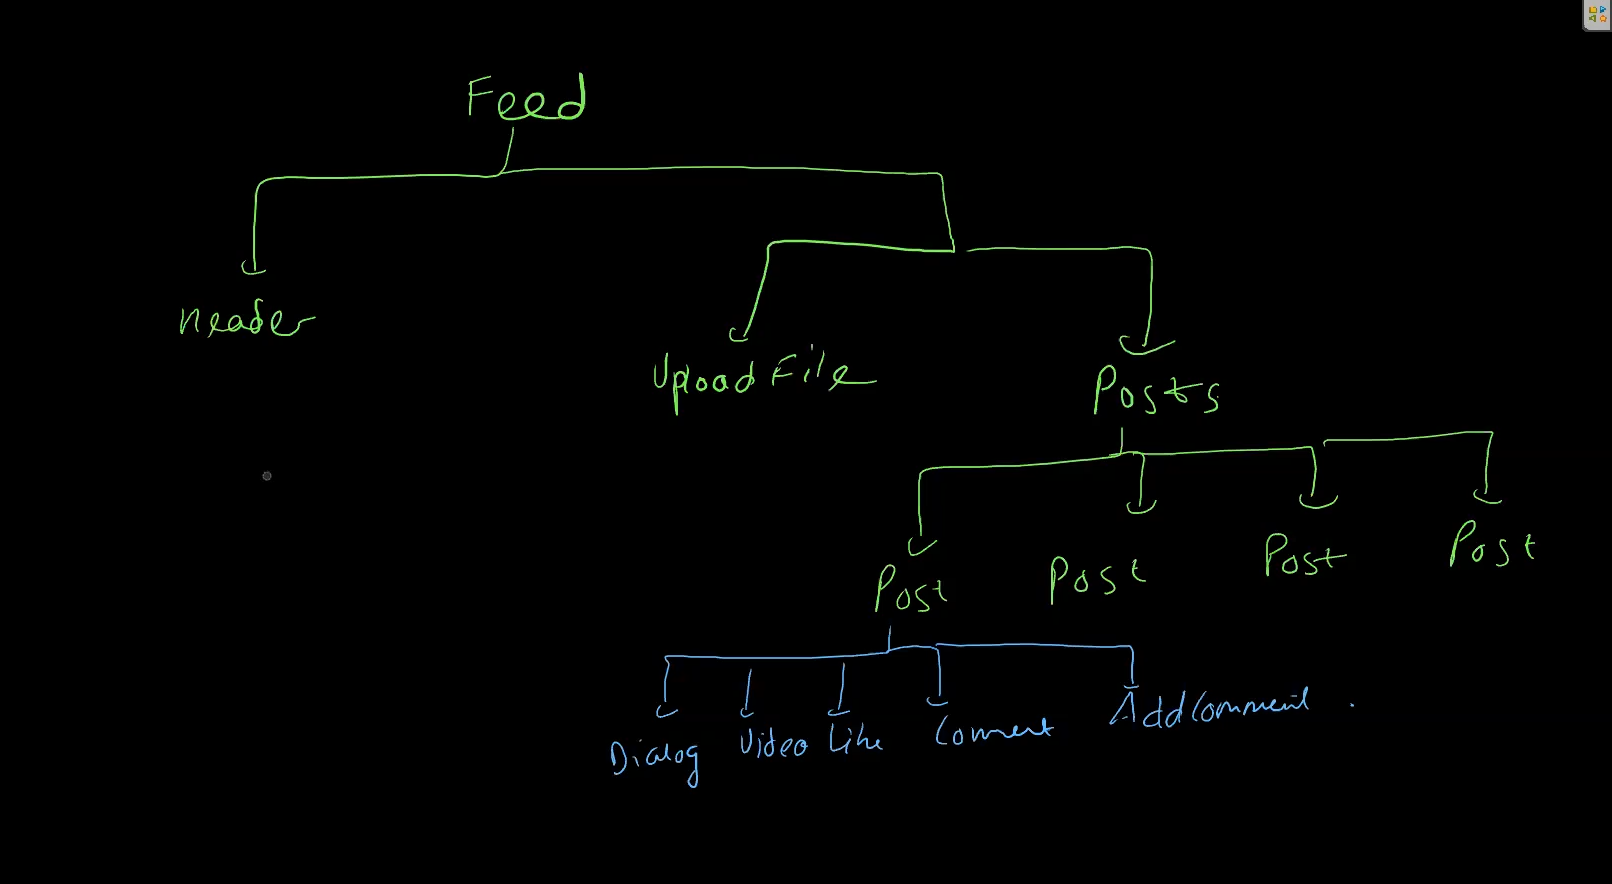 Feed
Header
Upload File
Posts
Post Post Post Post
Dialog Video Like Comment Add Comment .